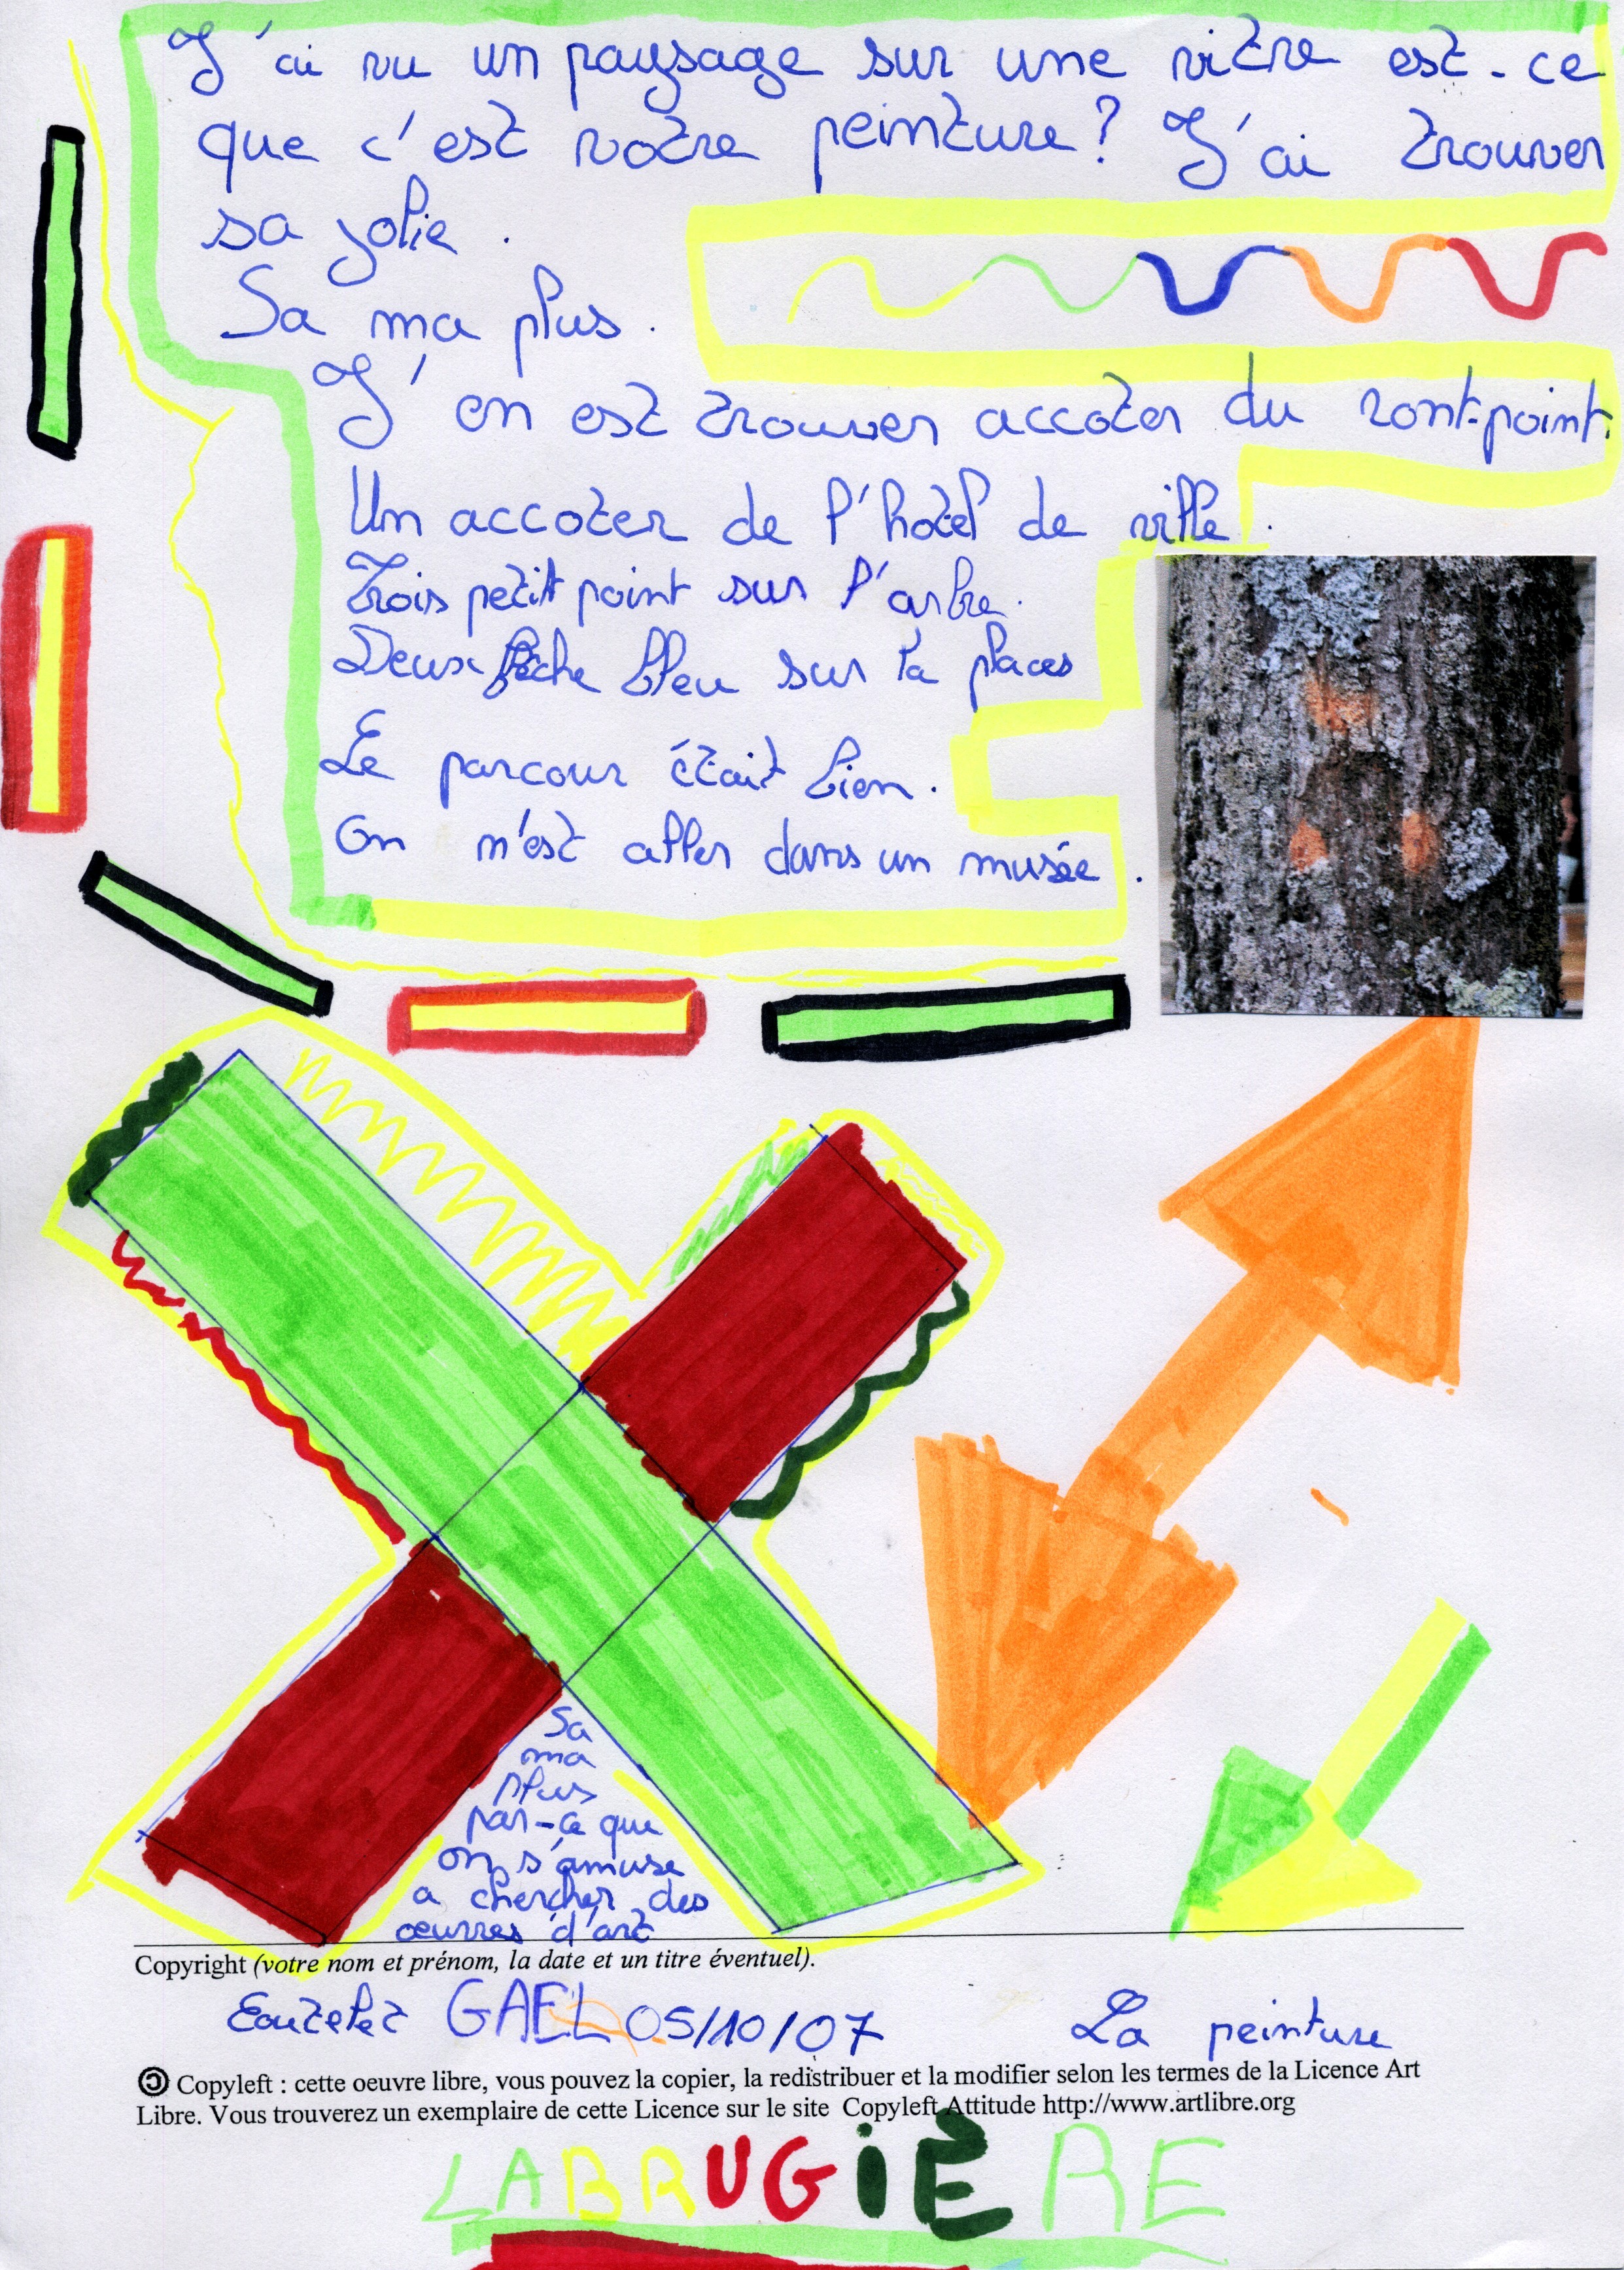 J'ai vu un paysage sur une vitre est-ce
que c'est votre peinture? J'ai trouver
sa jolie.
Sa ma plus.
J'en est trouver accoter du ront-point.
Un accoter de l'hotel de ville.
Trois petit point sur l'arbre.
Deux flèche bleu sur la places
Le parcour était bien.
On n'est aller dans un musée.
Sa
ma
plus
par-ce que
on s'amuse
a chercher des
œuvres d'art
Copyright (votre nom et prénom, la date et un titre éventuel).
GAEL 05/10/07 La peinture
Copyleft : cette oeuvre libre, vous pouvez la copier, la redistribuer et la modifier selon les termes de la Licence Art
Libre. Vous trouverez un exemplaire de cette Licence sur le site Copyleft Attitude http://www.artlibre.org
LABRUGiERE